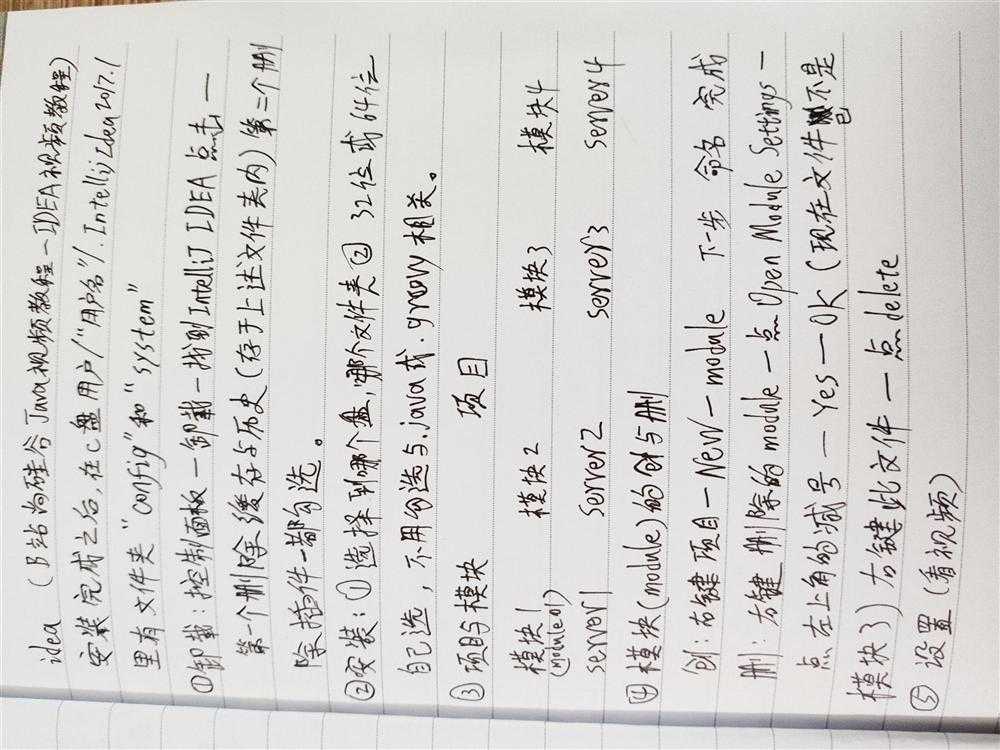 idea （B站尚硅谷Java视频教程－IDEA视频教程）
安装完成之后，在C盘用户/"用户名"/.IntelliJIdea2017.1
里有文件夹"config"和"system"
①卸载：控制面板－卸载－找到IntelliJ IDEA点击－
第一个删除缓存与历史（存于上述文件夹内）第二个删
除插件－都勾选。
②安装：①选择到哪个盘，哪个文件夹②32位或64位
自己选，不用勾选与.java或.groovy相关。
③项目与模块 项目
模块1 模块2 模块3 模块4
(module01)
server1 server2 server3 server4
④模块(module)的创与删
创：右键项目－New－module 下一步 命名 完成
删：右键删除的module－点Open Module Settings－
点左上角的减号－Yes－OK（现在文件已不是
模块了）右键此文件－点delete
⑤设置（看视频）